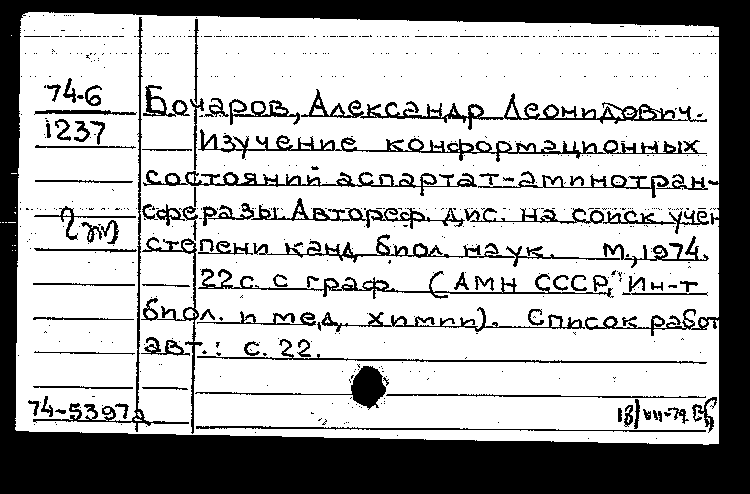 74-6
1237
Бочаров, Александр Леонидович.
Изучение конформационных
состояний аспартат-аминотран-
сферазы. Автореф. дис. на соиск. учен
степени канд. биол. наук. М., 1974.
22 с. с граф. (АМН СССР, Ин-т
биол. и мед. химии). Список работ
авт.: с. 22.
74-5397а